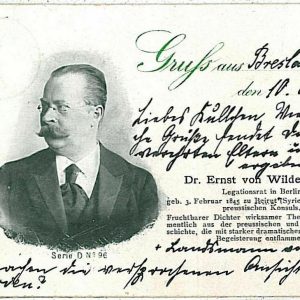 Gruss aus Breslau
den 10.
Liebes Käthchen,
che Grüße sendet
verehrten Eltern
ergeben
Dr. Ernst von Wilde
Legationsrat in Berlin
geb. 3. Februar 1845 zu Beirut (Syrie
preussischen Konsuls,
Fruchtbarer Dichter wirksamer The
mentlich aus der preussischen und
schichte, die mit starker dramatischer
Begeisterung entflammen
Serie D No 96
+ Landsmann
machen die versprochenen Ansich